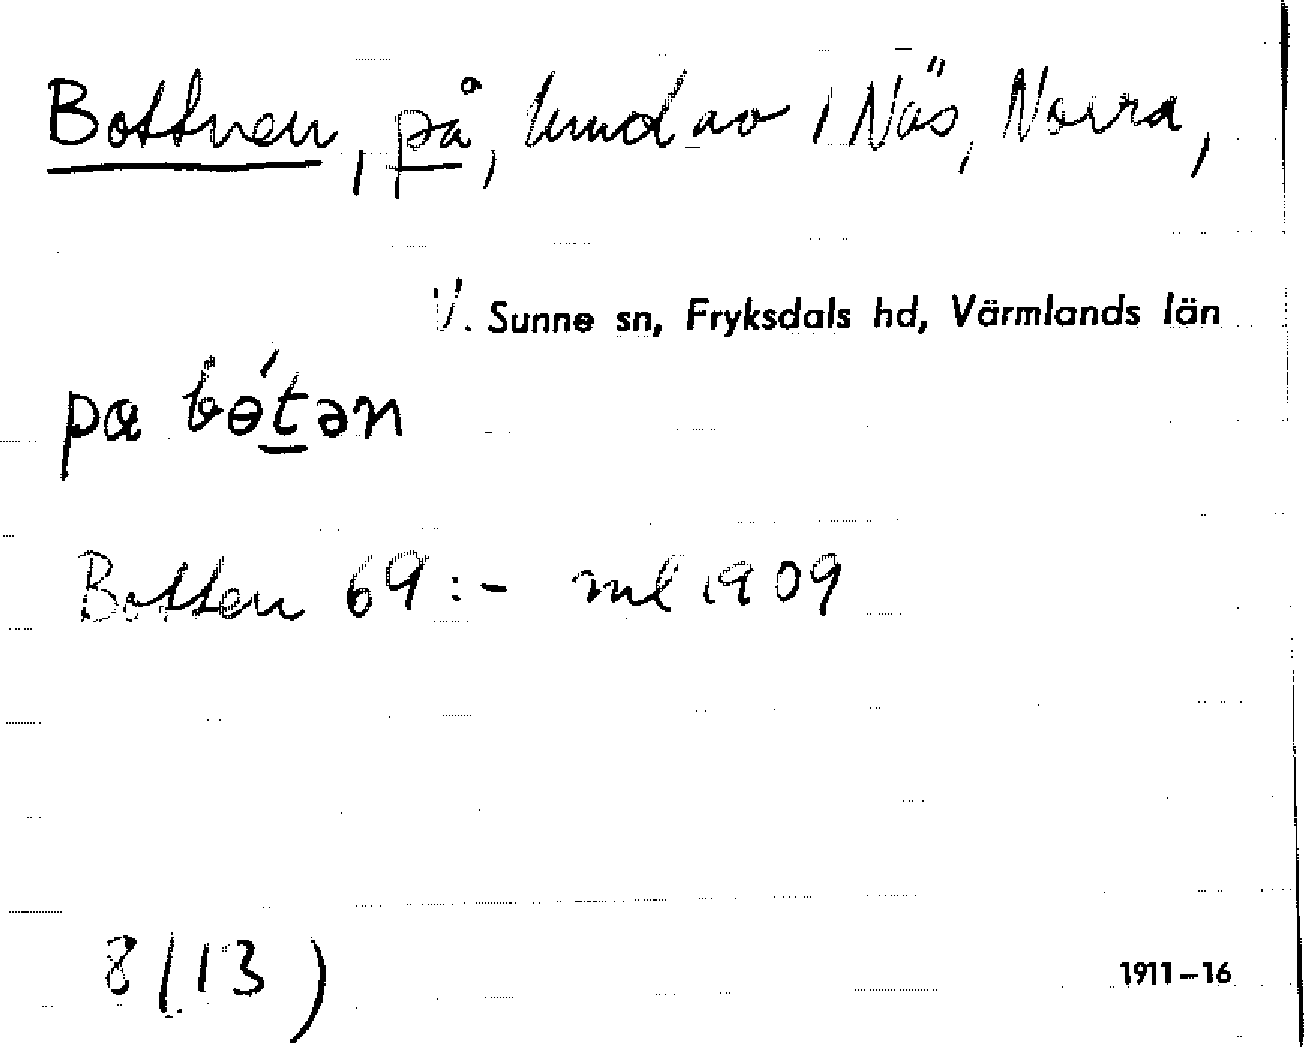 Bottnen, på, lund av 1 Näs, Norra,
V. Sunne sn, Fryksdals hd, Värmlands län
pa bɵ́tən
Botten 69:- ml 1909
8 (13)
1911–16